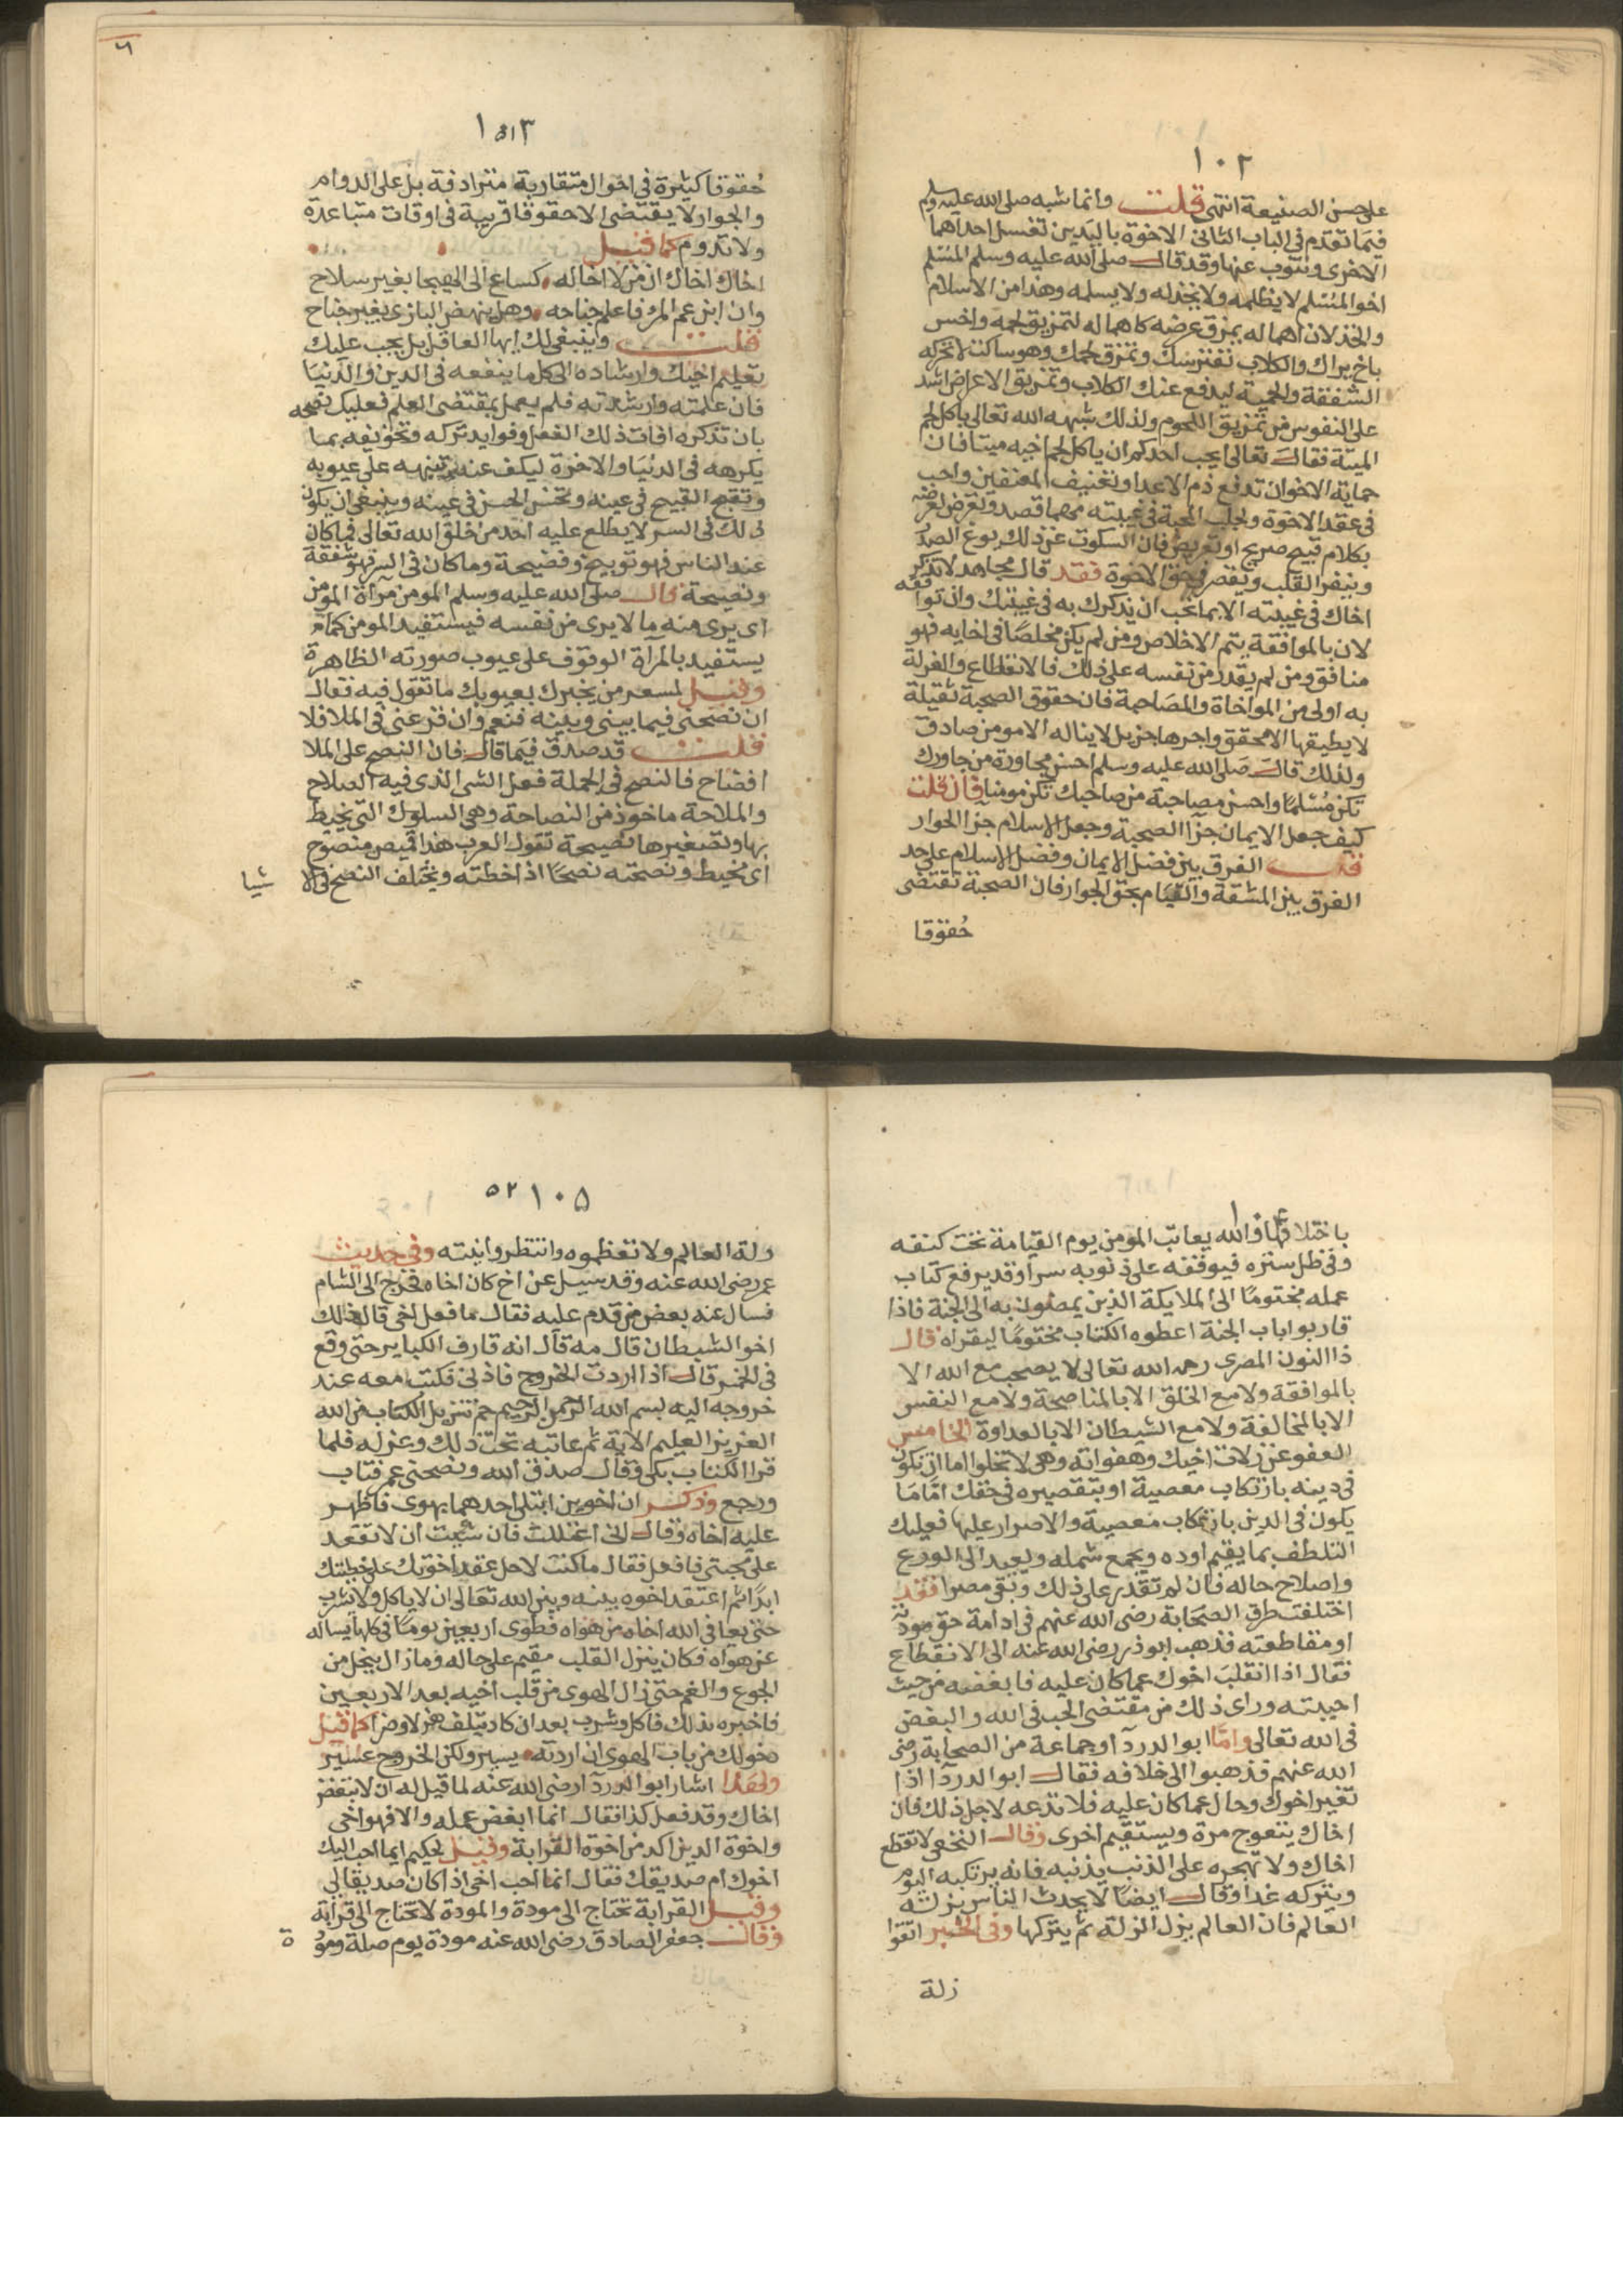 ١٠٢
على حسن الصنيعة انتهى قلت وانما شبه صلى الله عليه وسلم
فيما تقدم في الباب الثاني الاخوة باليدين تغسل احداهما
الاخرى وينوب عنها وقد قال صلى الله عليه وسلم المسلم
اخو المسلم لا يظلمه ولا يخذله ولا يسلمه وهذا من الاسلام
والخذلان اهماله يمزق عرضه كاهماله لتمزيق لحمه واخس
باخ يراك والكلاب تفترسك وتمزق لحمك وهو ساكت لا تحركه
الشفقة والحمية ليدفع عنك الكلاب وتمزيق الاعراض اشد
على النفوس من تمزيق اللحوم ولذلك شبهه الله تعالى باكل لحم
الميتة فقال تعالى ايحب احدكم ان ياكل لحم اخيه ميتا فان
حماية الاخوان تدفع ذم الاعدا وتعنيف المعنفين واجب
في عقد الاخوة وجلب المحبة في غيبته مهما قصد وتعرض لعرضه
بكلام قبيح صريح او تعريض فان السكوت عن ذلك يوغ الصد
وينفر القلب ويقصر في حق الاخوة فقد قال مجاهد لا تذكر
اخاك في غيبته الا بما تحب ان يذكرك به في غيبتك وان توافقه
لان بالموافقة يتم الاخلاص ومن لم يكن مخلصا في اخايه فهو
منافق ومن لم يقدر من نفسه على ذلك فالانقطاع والعزلة
به اولى من المواخاة والمصاحبة فان حقوق الصحبة ثقيلة
لا يطيقها الا محقق واجرها جزيل لا يناله الا مومن صادق
ولذلك قال صلى الله عليه وسلم احسن مجاورة من جاورك
تكن مسلما واحسن مصاحبة من صاحبك تكن مومنا فان قلت
كيف جعل الايمان جزا الصحبة وجعل الاسلام جزا الجوار
قلت الفرق بين فضل الايمان وفضل الاسلام على حد
الفرق بين المشقة والقيام بحق الجوار فان الصحبة تقتضى
حقوقا
١٥١٣
حقوقا كثيرة في احوال متقاربة مترادفة بل على الدوام
والجوار لا يقتضى الا حقوقا قريبة في اوقات متباعدة
ولا تدوم كما قيل
اخاك اخاك ان من لا اخا له كساع الى الهيجا بغير سلاح
وان ابن عم المرء فاعلم جناحه وهل ينهض البازى بغير جناح
قلت وينبغى لك ايها العاقل بل يجب عليك
تعليم اخيك وارشاده الى كل ما ينفعه في الدين والدنيا
فان علمته وارشدته فلم يعمل بمقتضى العلم فعليك نصحه
بان تذكره افات ذلك الفعل وفوايد تركه وتخوفه بما
يكرهه في الدنيا والاخرة ليكف عنه ثم تنبهه على عيوبه
وتقبح القبيح في عينه وتحسن الحسن في عينه وينبغى ان يكون
ذلك في السر لا يطلع عليه احد من خلق الله تعالى فما كان
عند الناس فهو توبيخ وفضيحة وما كان في السر فهو شفقة
ونصيحة قال صلى الله عليه وسلم المومن مرآة المومن
اى يرى منه ما لا يرى من نفسه فيستفيد المومن كما
يستفيد بالمرآة الوقوف على عيوب صورته الظاهرة
وقيل لمسعر من يخبرك بعيوبك ما تقول فيه فقال
ان نصحنى فيما بينى وبينه فنعم وان قرعنى في الملا فلا
قلت قد صدق فيما قال فان النصح على الملا
افضاح فالنصح في الجملة فعل الشى الذى فيه الصلاح
والملاحة ماخوذ من النصاحة وهى السلوك التى يخيط
بها وتصغيرها نصيحة تقول العرب هذا قميص منصوح
اى مخيط ونصحته نصحا اذا خطته ويختلف النصح في الا
شيا
١٠٤
باختلافها والله يعاتب المومن يوم القيامة تحت كنفه
وفي ظل ستره فيوقفه على ذنوبه سرا وقد يرفع كتاب
عمله مختوما الى الملايكة الذين يمضون به الى الجنة فاذا
قاربوا باب الجنة اعطوه الكتاب مختوما ليقراه قال
ذا النون المصرى رحمه الله تعالى لا يصحب مع الله الا
بالموافقة ولا مع الخلق الا بالمناصحة ولا مع النفس
الا بالمخالفة ولا مع الشيطان الا بالعداوة الخامس
العفو عن زلات اخيك وهفواته وهى لا تخلوا اما ان تكون
في دينه بارتكاب معصية او بتقصيره في حقك اما ما
يكون في الدين بارتكاب معصية والاصرار عليها فعليك
التلطف بما يقيم اوده ويجمع شمله ويعيد الى الورع
واصلاح حاله فان لم تقدر على ذلك وبقى مصرا فقد
اختلفت طرق الصحابة رضى الله عنهم في ادامة حق مودته
او مقاطعته فذهب ابو ذر رضى الله عنه الى الانقطاع
فقال اذا انقلب اخوك عما كان عليه فابغضه من حيث
احببته وراى ذلك من مقتضى الحب في الله والبغض
في الله تعالى واما ابو الدردآ وجماعة من الصحابة رضى
الله عنهم فذهبوا الى خلافه فقال ابو الدردآ اذا
تغير اخوك وحال عما كان عليه فلا تدعه لاجل ذلك فان
اخاك يتعوج مرة ويستقيم اخرى وقال النخعى لا تقطع
اخاك ولا تهجره على الذنب بذنبه فانه يرتكبه اليوم
ويتركه غدا وقال ايضا لا يحدث الناس بزلته
العالم فان العالم يزل الزلة ثم يتركها وفي الخبر اتقوا
زلة
١٠٥ ٥٢
زلة العالم ولا تقطموه وانتظروا فيئته وفي حديث
عمر رضى الله عنه وقد سيل عن اخ كان اخاه فخرج الى الشام
فسال عنه بعض من قدم عليه فقال ما فعل اخى قال ذلك
اخو الشيطان قال مه قال انه قارف الكباير حتى وقع
في الخمر قال اذا اردت الخروج فاذنى فكتب معه عند
خروجه اليه بسم الله الرحمن الرحيم حم تنزيل الكتاب من الله
العزيز العليم الاية ثم عاتبه تحت ذلك وعزله فلما
قرا الكتاب بكى وقال صدق الله ونصحنى عمر فتاب
ورجع وذكر ان اخوين ابتلى احدهما بهوى فاظهر
عليه اخاه وقال انى اعتللت فان شيت ان لا تقعد
على محبتى فافعل فقال ما كنت لاحل عقد اخوتك على خطيتك
ابدا ثم اعتقد اخوه بينه وبين الله تعالى ان لا ياكل ولا يشرب
حتى يعافى الله اخاه من هواه فطوى اربعين يوما في كلها يساله
عن هواه فكان ينزل القلب مقيم على حاله وما زال ينحل من
الجوع والغم حتى زال الهوى من قلب اخيه بعد الاربعين
فاخبره بذلك فاكل وشرب بعد ان كاد يتلف هزلا وضرا كما قيل
دخولك من باب الهوى ان اردته يسير ولكن الخروج عسير
ولهذا اشار ابو الدردآ رضى الله عنه لما قيل له ان لا تبغض
اخاك وقد فعل كذا فقال انما ابغض عمله والا فهو اخى
واخوة الدين اكد من اخوة القرابة وقيل لحكيم ايما احب اليك
اخوك ام صديقك فقال انما احب اخى اذا كان صديقا لى
وقيل القرابة تحتاج الى مودة والمودة لا تحتاج الى قرابة
وقال جعفر الصادق رضى الله عنه مودة يوم صلة ومو
ة